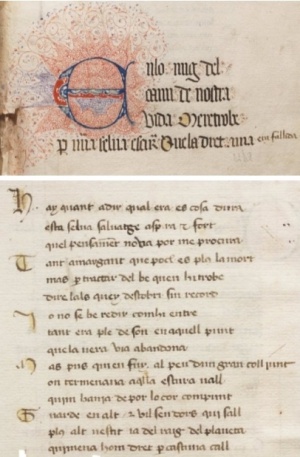 En lo mig del
cami de nostra
vida me retrobe
per una selva escura que la dreta via era fallida
Hay quant a dir qual era es cosa dura
esta selva salvatge aspra e fort
quel pensament nova por me procura
Tant amargant que poch es pla la mort
mas per tractar del be quen hi trobe
dire lals quey descobri sin recort
Io no se be redir com hi entre
tant era ple de son en aquell punt
que la vera via abandone
Mas pus quen fuy al peu dun gran coll junt
on termenava aquella escura vall
quim havia de por lo cor compunt
Guarde en alt e viu sen dors qui sall
pla alt vestit ia del raig del planeta
qui mena hom dret per cascuna call